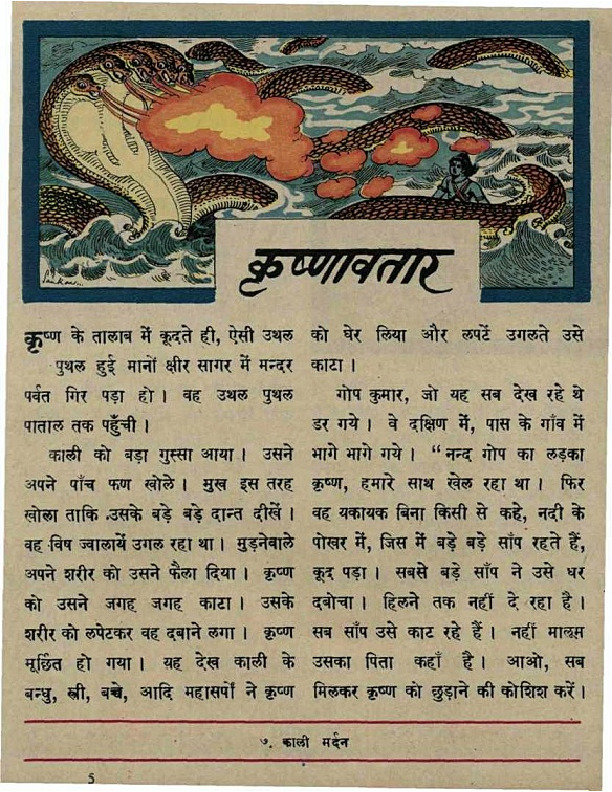 कृष्णावतार
कृष्ण के तालाब में कूदते ही, ऐसी उथल
पुथल हुई मानों क्षीर सागर में मन्दर
पर्वत गिर पड़ा हो। वह उथल पुथल
पाताल तक पहुँची।
काली को बड़ा गुस्सा आया। उसने
अपने पाँच फण खोले। मुख इस तरह
खोला ताकि उसके बड़े बड़े दान्त दीखें।
वह विष ज्वालायें उगल रहा था। मुड़नेवाले
अपने शरीर को उसने फैला दिया। कृष्ण
को उसने जगह जगह काटा। उसके
शरीर को लपेटकर वह दबाने लगा। कृष्ण
मूर्छित हो गया। यह देख काली के
बन्धु, स्त्री, बच्चे, आदि महासर्पों ने कृष्ण
को घेर लिया और लपटें उगलते उसे
काटा।
गोप कुमार, जो यह सब देख रहे थे
डर गये। वे दक्षिण में, पास के गाँव में
भागे भागे गये। "नन्द गोप का लड़का
कृष्ण, हमारे साथ खेल रहा था। फिर
वह यकायक बिना किसी से कहे, नदी के
पोखर में, जिस में बड़े बड़े साँप रहते हैं,
कूद पड़ा। सबसे बड़े साँप ने उसे धर
दबोचा। हिलने तक नहीं दे रहा है।
सब साँप उसे काट रहे हैं। नहीं मालूम
उसका पिता कहाँ है। आओ, सब
मिलकर कृष्ण को छुड़ाने की कोशिश करें।
७. काली मर्दन
5